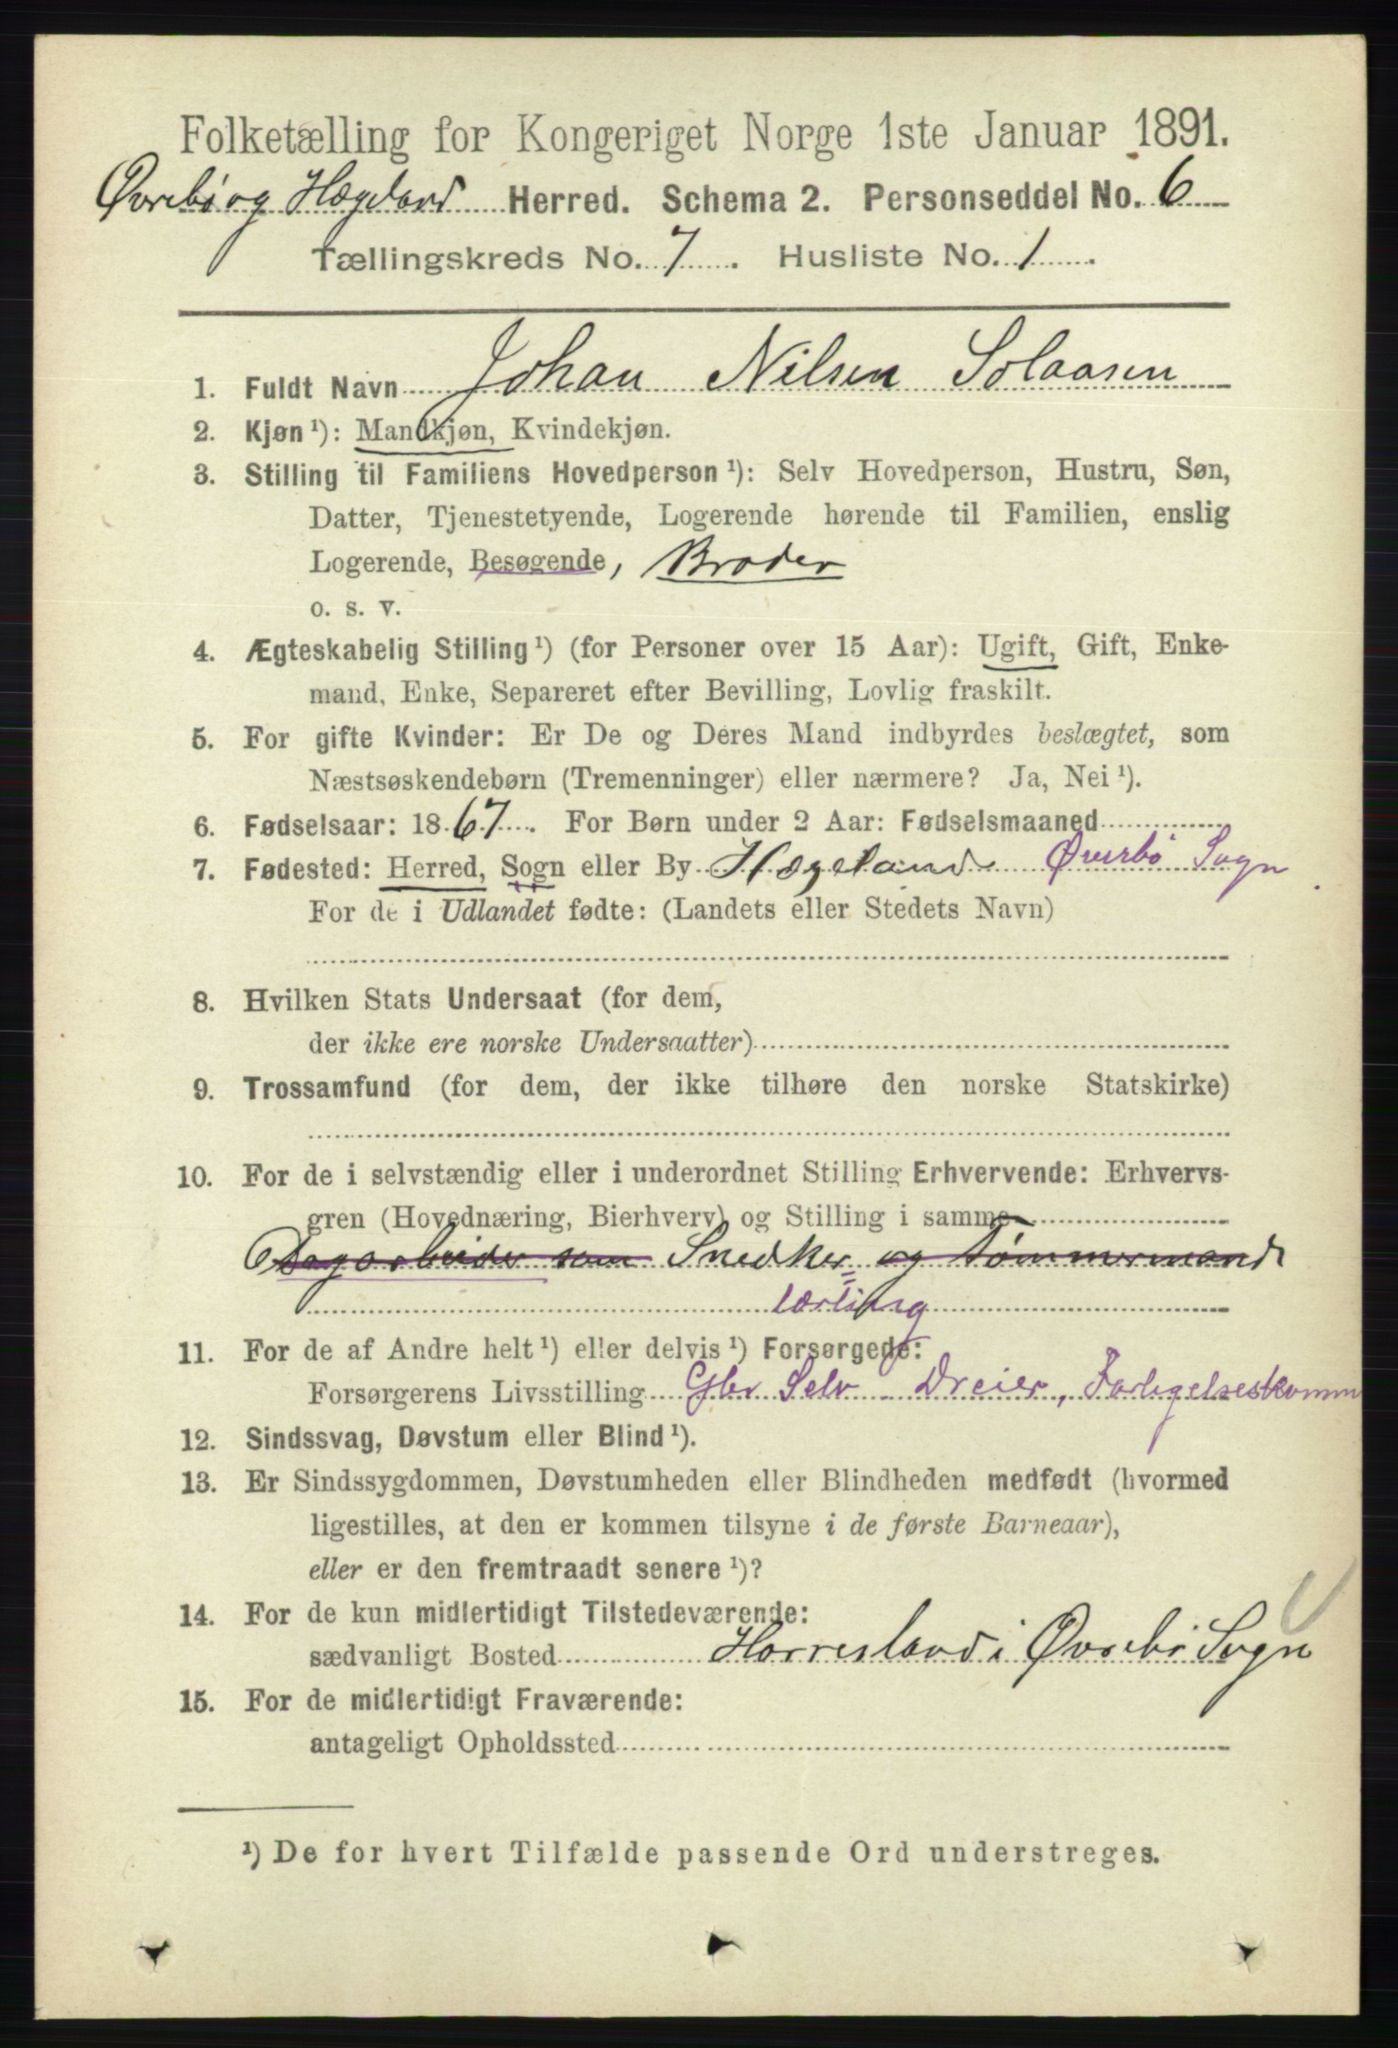 Folketælling for Kongeriget Norge 1ste Januar 1891.
Øvrebø og Hægeland Herred. Schema 2. Personseddel No. 6
Tællingskreds No. 7. Husliste No. 1.
1. Fuldt Navn Johan Nilsen Solaasen
2. Kjøn ¹): Mandkjøn, Kvindekjøn.
3. Stilling til Familiens Hovedperson ¹): Selv Hovedperson, Hustru, Søn,
Datter, Tjenestetyende, Logerende hørende til Familien, enslig
Logerende, Besøgende, Broder
o. s. v.
4. Ægteskabelig Stilling ¹) (for Personer over 15 Aar): Ugift, Gift, Enke-
mand, Enke, Separeret efter Bevilling, Lovlig fraskilt.
5. For gifte Kvinder: Er De og Deres Mand indbyrdes beslægtet, som
Næstsøskendebørn (Tremenninger) eller nærmere? Ja, Nei ¹).
6. Fødselsaar: 1867. For Børn under 2 Aar: Fødselsmaaned
7. Fødested: Herred, Sogn eller By Hægeland Øvrebø Sogn
For de i Udlandet fødte: (Landets eller Stedets Navn)
8. Hvilken Stats Undersaat (for dem,
der ikke ere norske Undersaatter)
9. Trossamfund (for dem, der ikke tilhøre den norske Statskirke)
10. For de i selvstændig eller i underordnet Stilling Erhvervende: Erhvervs-
gren (Hovednæring, Bierhverv) og Stilling i samme
Dagarbeider som Snedker og tømmermand
lærling
11. For de af Andre helt ¹) eller delvis ¹) Forsørgede:
Forsørgerens Livsstilling Gbr Selv Dreier, Forligelseskomm
12. Sindssvag, Døvstum eller Blind ¹).
13. Er Sindssygdommen, Døvstumheden eller Blindheden medfødt (hvormed
ligestilles, at den er kommen tilsyne i de første Barneaar),
eller er den fremtraadt senere ¹)?
14. For de kun midlertidigt Tilstedeværende:
sædvanligt Bosted Horresland i Øvrebø Sogn
15. For de midlertidigt Fraværende:
antageligt Opholdssted
¹) De for hvert Tilfælde passende Ord understreges.